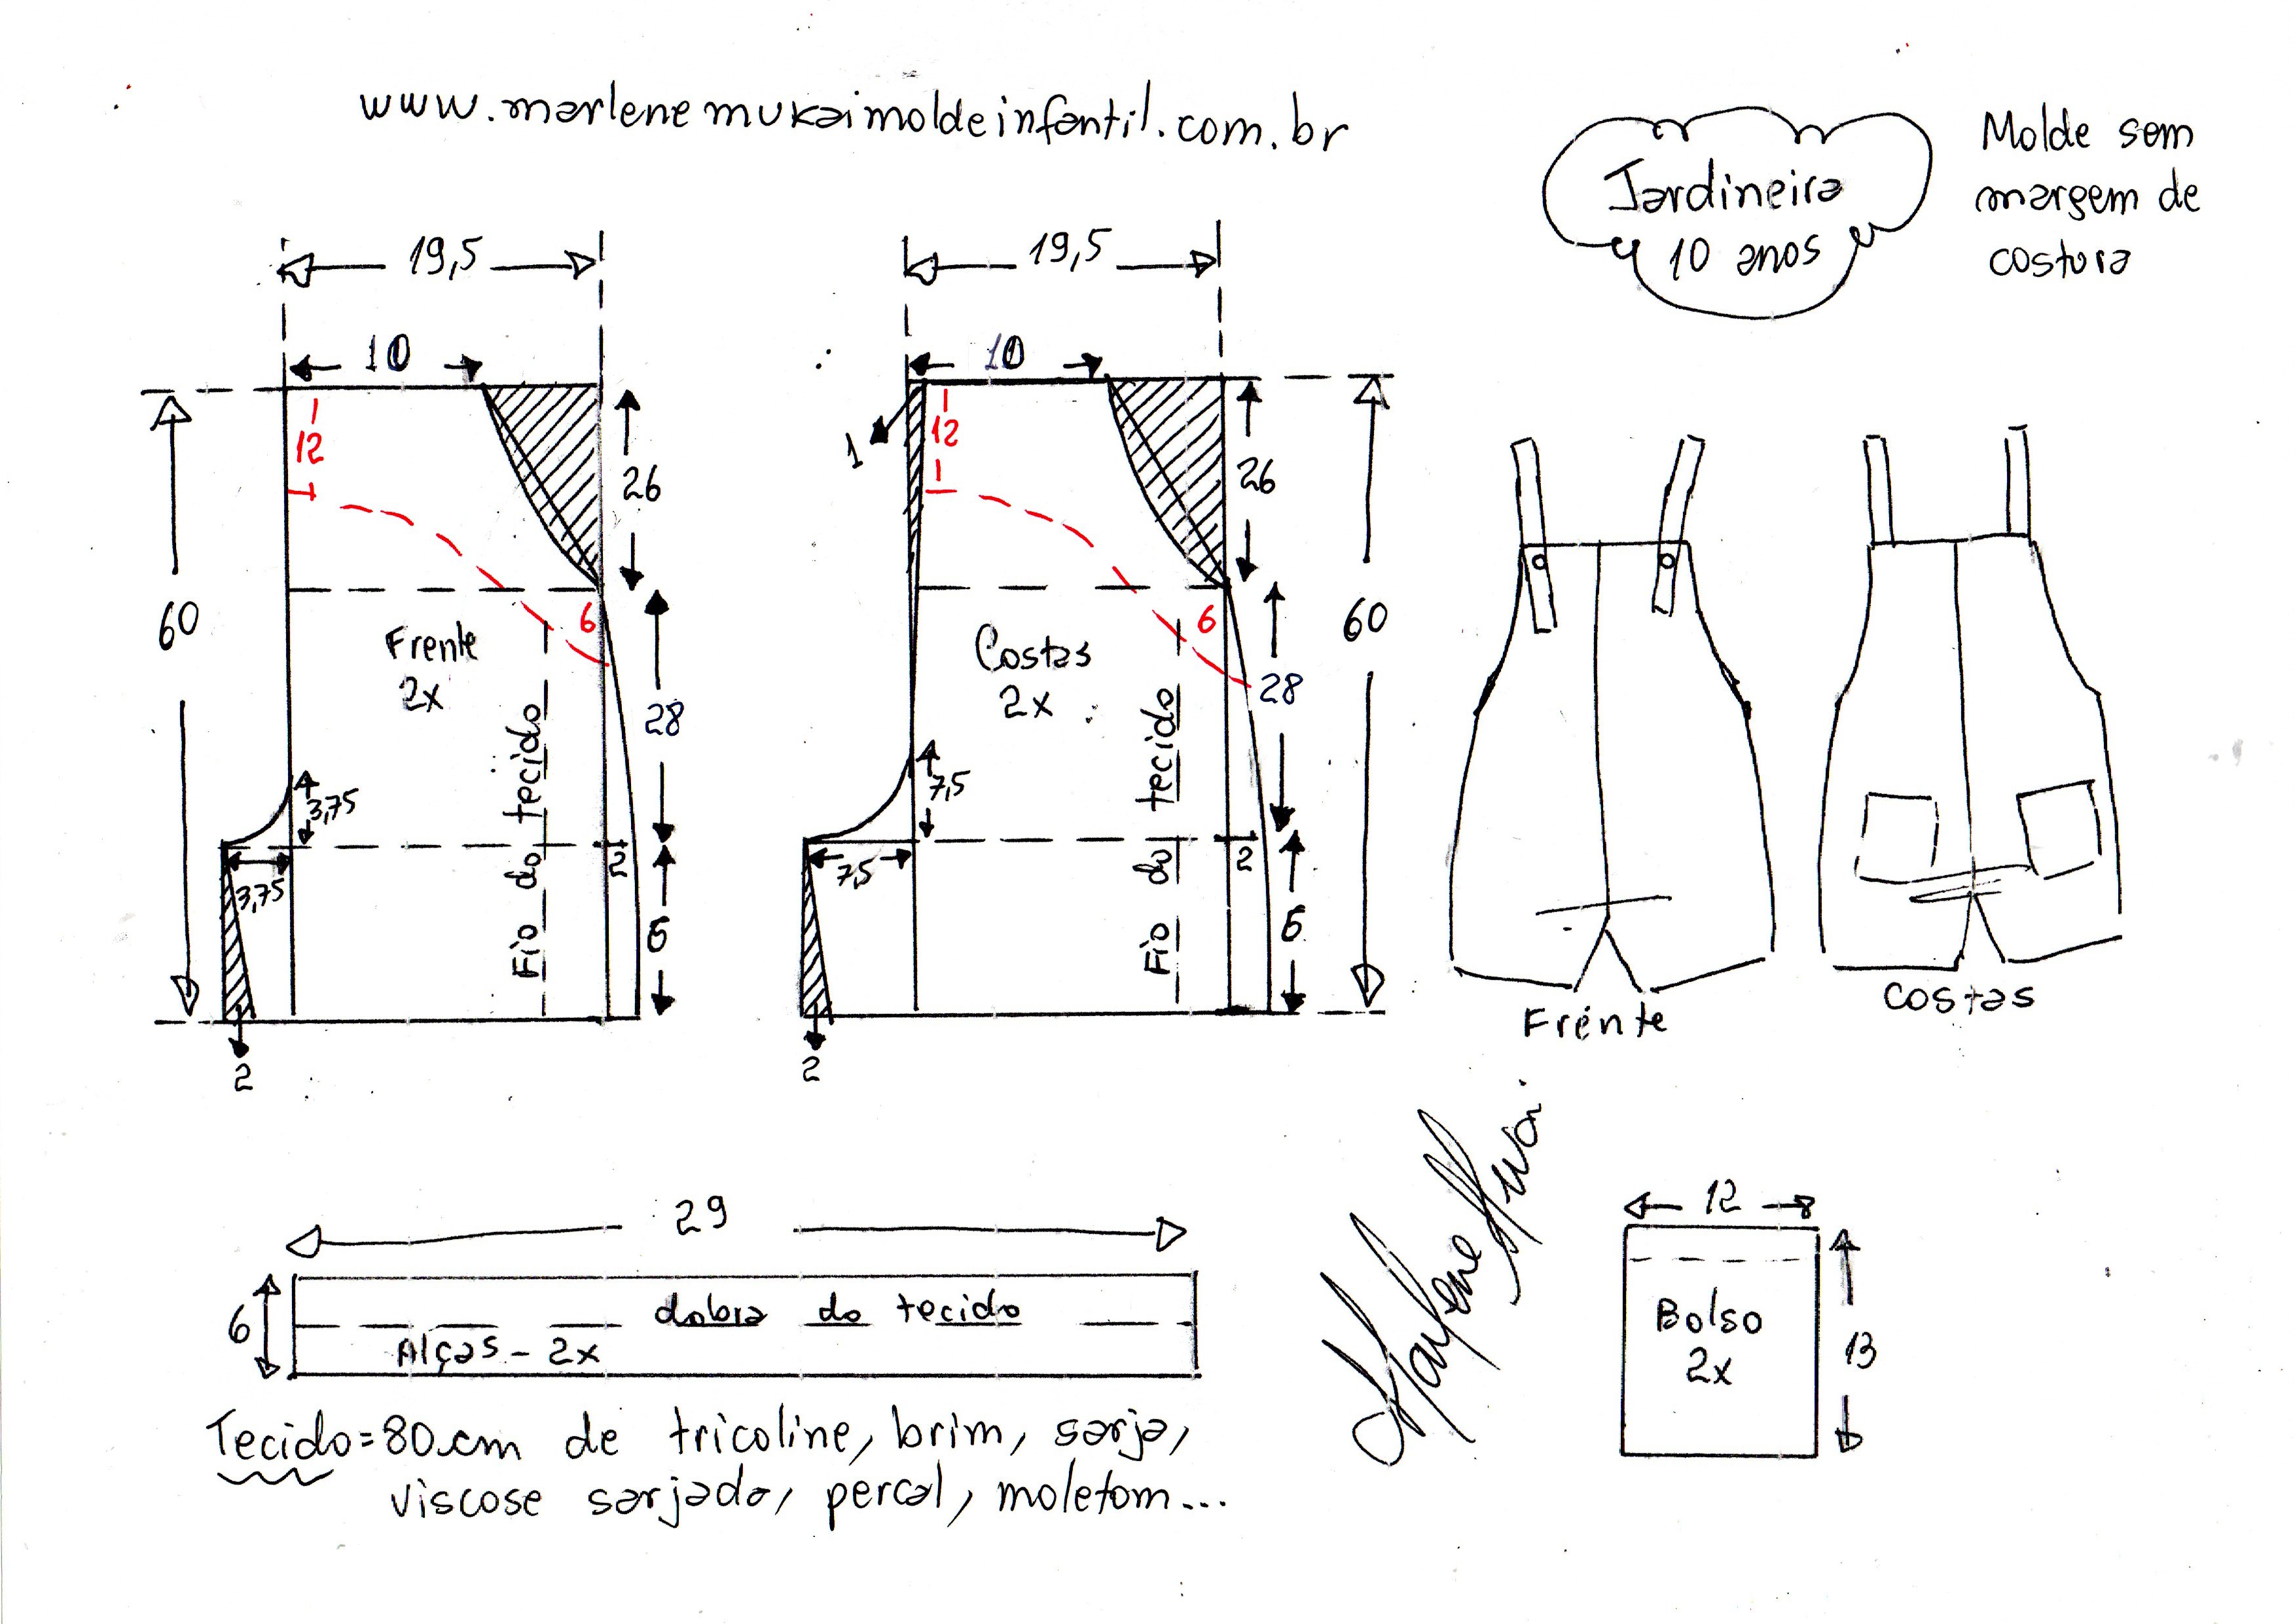 www.marlenemukaimoldeinfantil.com.br
Jardineira
10 anos
Molde sem
margem de
costura
19,5
10
12
26
60
6
Frente
2x
28
Fio do tecido
3,75
3,75
2
6
2
19,5
10
1
12
26
60
6
Costas
2x
28
Fio do tecido
7,5
7,5
2
6
2
Frente
Costas
29
6
dobra do tecido
Alças - 2x
12
Bolso
2x
13
Tecido=80cm de tricoline, brim, sarja,
viscose sarjada, percal, moletom...